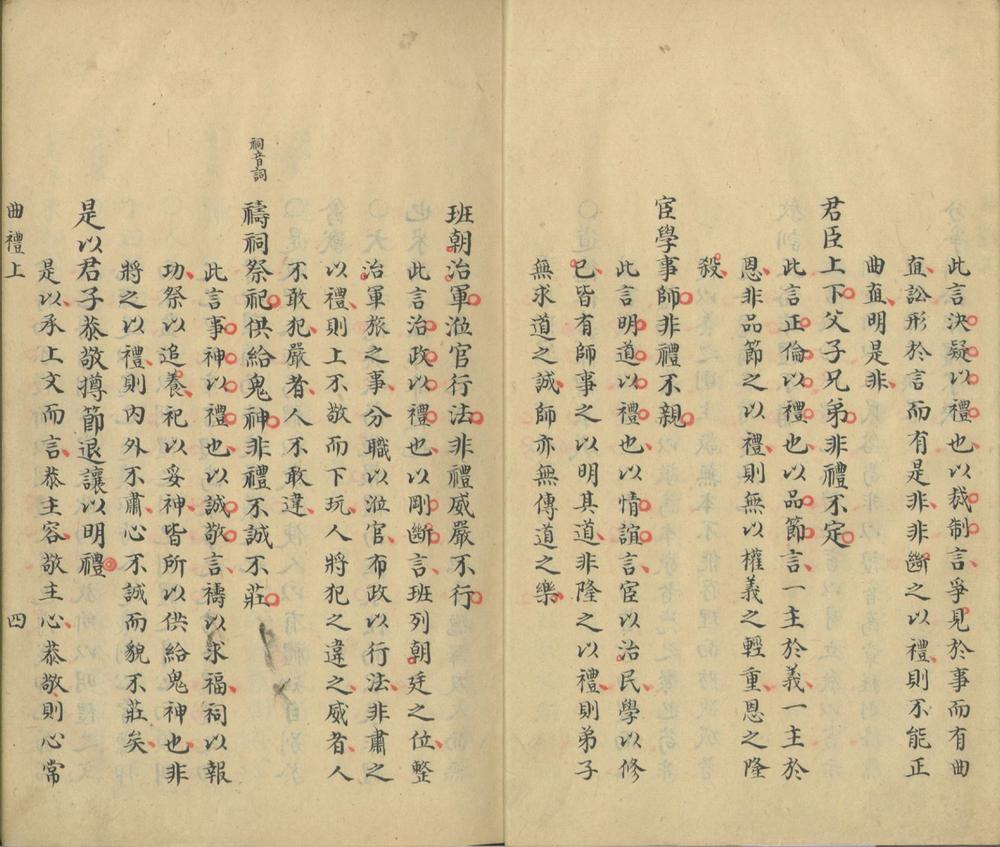 此言決疑以禮也以裁制言爭見於事而有曲
直訟形於言而有是非非斷之以禮則不能正
曲直明是非
君臣上下父子兄弟非禮不定
此言正倫以禮也以品節言一主於義一主於
恩非品節之以禮則無以權義之輕重恩之隆
殺
宦學事師非禮不親
此言明道以禮也以情誼言宦以治民學以修
己皆有師事之以明其道非隆之以禮則弟子
無求道之誠師亦無傳道之樂
班朝治軍涖官行法非禮威嚴不行
此言治政以禮也以剛斷言班列朝廷之位整
治軍旅之事分職以涖官布政以行法非肅之
以禮則上不敬而下玩人將犯之違之威者人
不敢犯嚴者人不敢違
祠音詞
禱祠祭祀供給鬼神非禮不誠不莊
此言事神以禮也以誠敬言禱以求福祠以報
功祭以追養祀以妥神皆所以供給鬼神也非
將之以禮則內外不肅心不誠而貌不莊矣
是以君子恭敬撙節退讓以明禮
是以承上文而言恭主容敬主心恭敬則心常
曲禮上 四